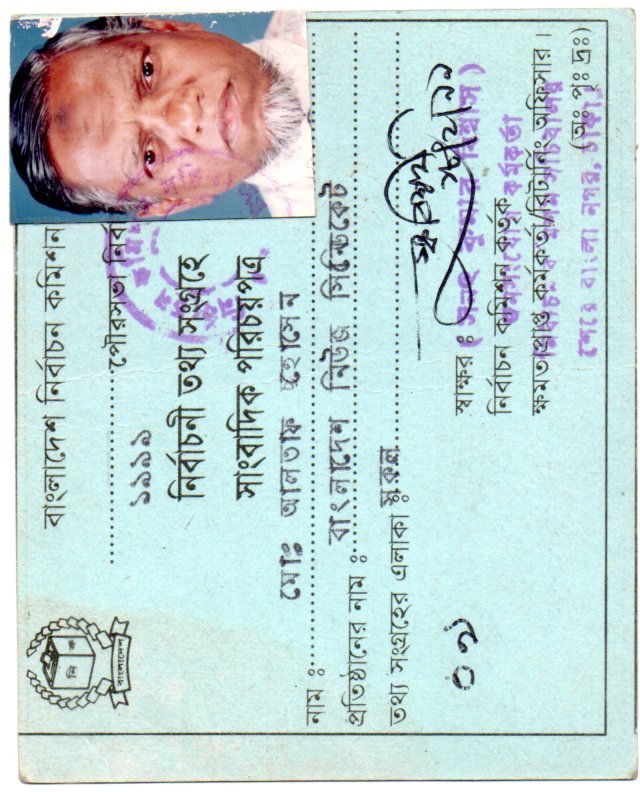 বাংলাদেশ নির্বাচন কমিশন
পৌরসভা নির্বা
১৯৯৯
নির্বাচনী তথ্য সংগ্রহে
সাংবাদিক পরিচয়পত্র
নাম : মোঃ আলতাফ হোসেন
প্রতিষ্ঠানের নাম : বাংলাদেশ নিউজ সিন্ডিকেট
তথ্য সংগ্রহের এলাকা : সকল
স্বাক্ষর :
নির্বাচন কমিশন কর্তৃক
ক্ষমতাপ্রাপ্ত কর্মকর্তা/রিটার্নিং অফিসার।
(অঃ পৃঃ দ্রঃ)
জনসংযোগ কর্মকর্তা
নির্বাচন কমিশন সচিবালয়
শেরে বাংলা নগর, ঢাকা।
বাংলাদেশ